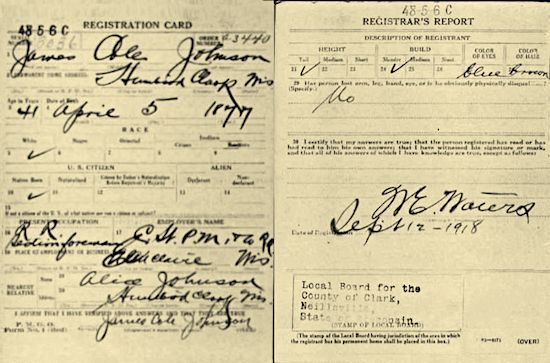 4856C
REGISTRATION CARD
SERIAL NUMBER
ORDER NUMBER
3440
James Cole Johnson
PERMANENT HOME ADDRESS:
Humbird Clark Wis
Age in Years Date of Birth
41 April 5 1877
RACE
White Negro Oriental Indian
✓
U. S. CITIZEN ALIEN
Native Born Naturalized Citizen by Father's Naturalization Before Registrant's Majority Declarant Non-declarant
✓
If not a citizen of the U. S., of what nation are you a citizen or subject?
PRESENT OCCUPATION EMPLOYER'S NAME
R R
Section foreman C. St. P. M. & O Ry
PLACE OF EMPLOYMENT OR BUSINESS
Wis.
NEAREST RELATIVE Name Alice Johnson
Address Humbird Clark Wis
I AFFIRM THAT I HAVE VERIFIED ABOVE ANSWERS AND THAT THEY ARE TRUE
P. M. G. O.
Form No. 1 James Cole Johnson
(OVER)
4856C
REGISTRAR'S REPORT
DESCRIPTION OF REGISTRANT
HEIGHT BUILD COLOR OF EYES COLOR OF HAIR
Tall Medium Short Slender Medium Stout
21 ✓ 22 23 24 ✓ 25 26 Blue Brown
29 Has person lost arm, leg, hand, eye, or is he obviously physically disqualified?
(Specify.)
No
30 I certify that my answers are true; that the person registered has read or has had read to him his own answers; that I have witnessed his signature or mark, and that all of his answers of which I have knowledge are true, except as follows:
Date of Registration Sept 12-1918
Local Board for the
County of Clark,
Neillsville,
State
(STAMP OF LOCAL BOARD)
(The stamp of the Local Board having jurisdiction of the area in which the registrant has his permanent home shall be placed in this box.)
(OVER)